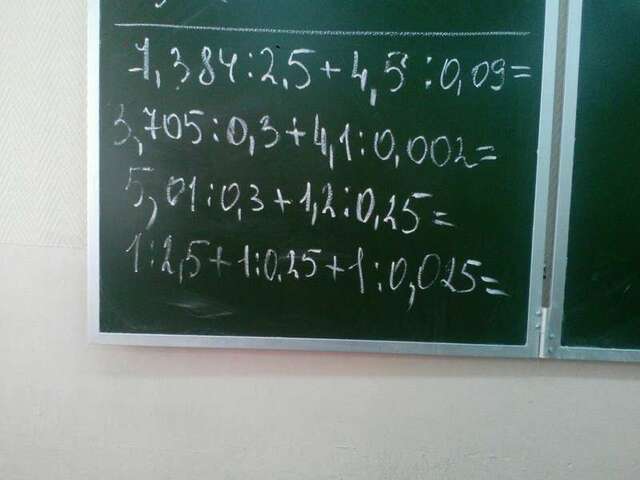 7,384:2,5+4,5:0,09=
3,705:0,3+4,1:0,002=
5,01:0,3+1,2:0,25=
1:2,5+1:0,25+1:0,025=